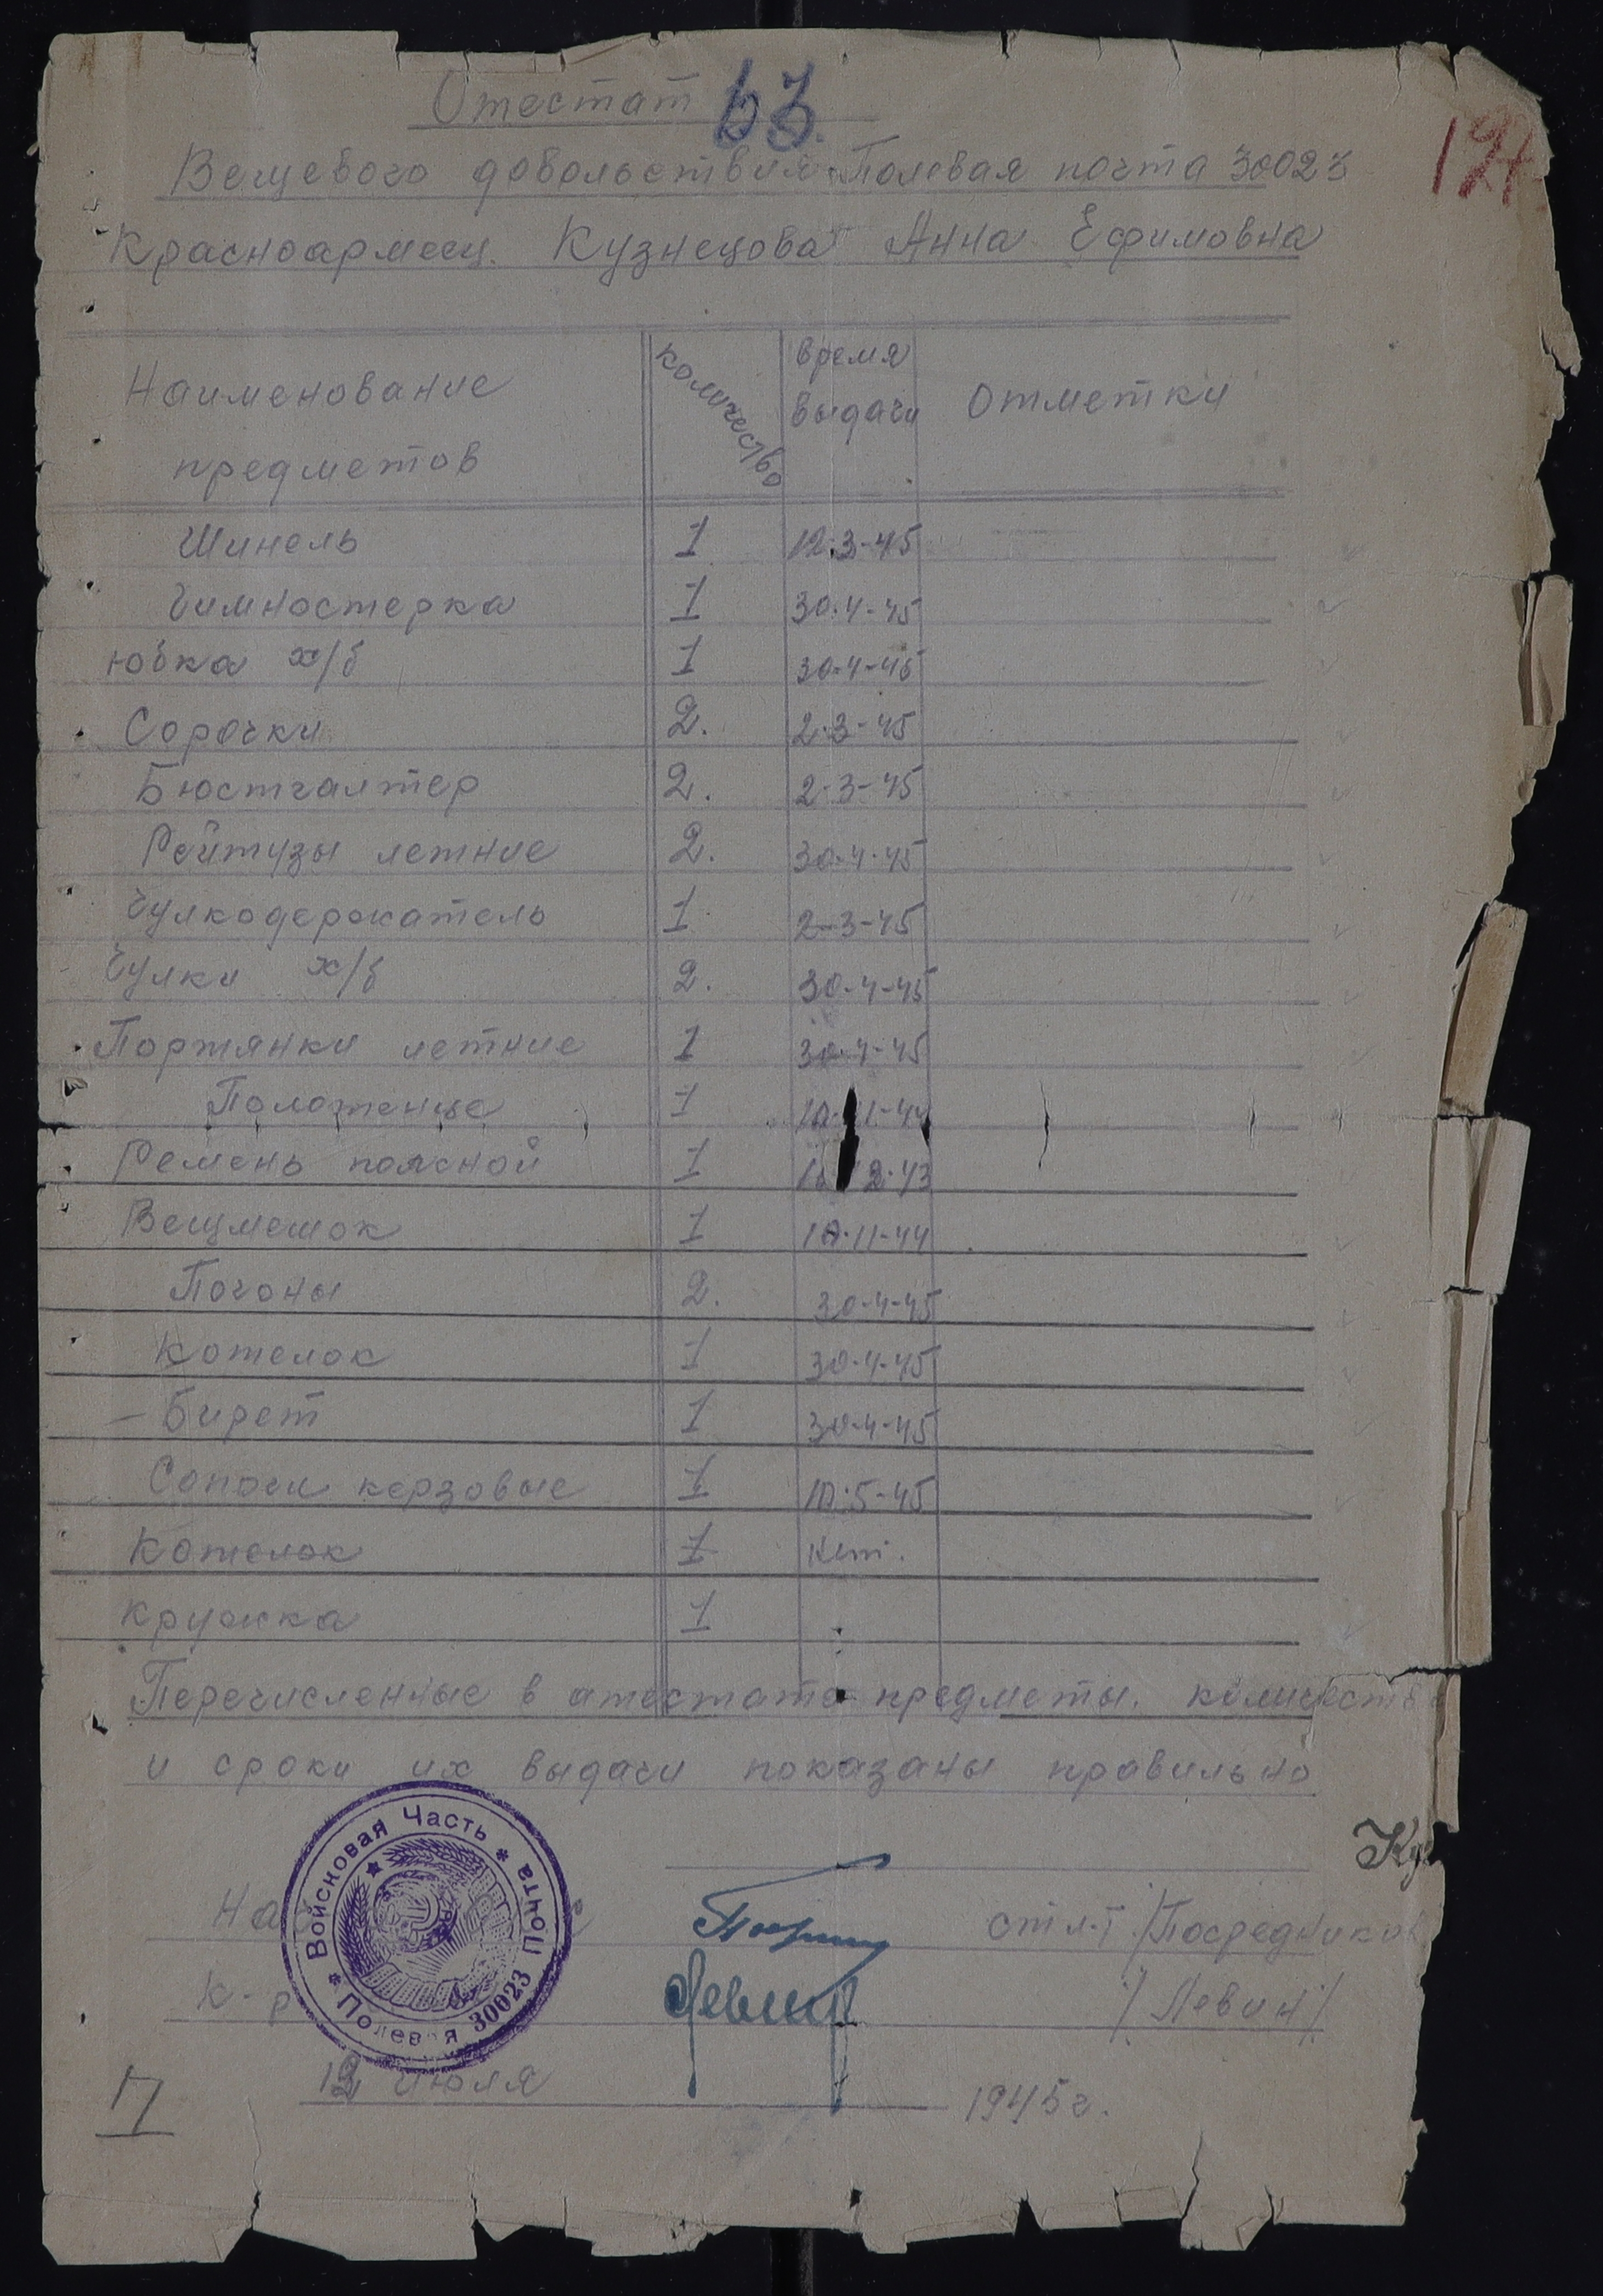 Отестат 63.
Вещевого довольствия Полевая почта 30023
Красноармеец. Кузнецова Анна Ефимовна
Наименование предметов количество время выдачи Отметки
Шинель 1 12-3-45
Гимностерка 1 30-4-45
юбка х/б 1 30-4-45
Сорочки 2. 2-3-45
Бюстгалтер 2. 2-3-45
Рейтузы летние 2. 30-4-45
Чулкодержатель 1 2-3-45
Чулки х/б 2. 30-4-45
Портянки летние 1 30-4-45
Полотенце 1 10-11-44
Ремень поясной 1 12-43
Вещмешок 1 10-11-44
Погоны 2. 30-4-45
Котелок 1 30-4-45
Бирет 1 30-4-45
Сапоги керзовые 1 10-5-45
Котелок 1
Кружка 1
Перечисленные в атестате предметы. количество
и сроки их выдачи показаны правильно
Ку
На
ст л-т /Посредников
К-р /Левин/
Войсновая Часть * Почта * Полевая 30023
12 июля 1945г.
П